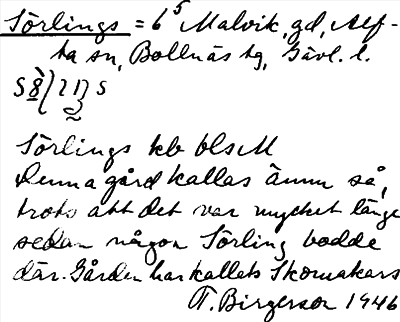 Sörlings = 6⁵ Malvik, gd, Alf-
ta sn, Bollnäs tg, Gävl. l.
Sörlings kb blsM
Denna gård kallas ännu så,
trots att det var mycket länge
sedan någon Sörling bodde
där. Gården har kallats Skomakars
T. Birgerson 1946